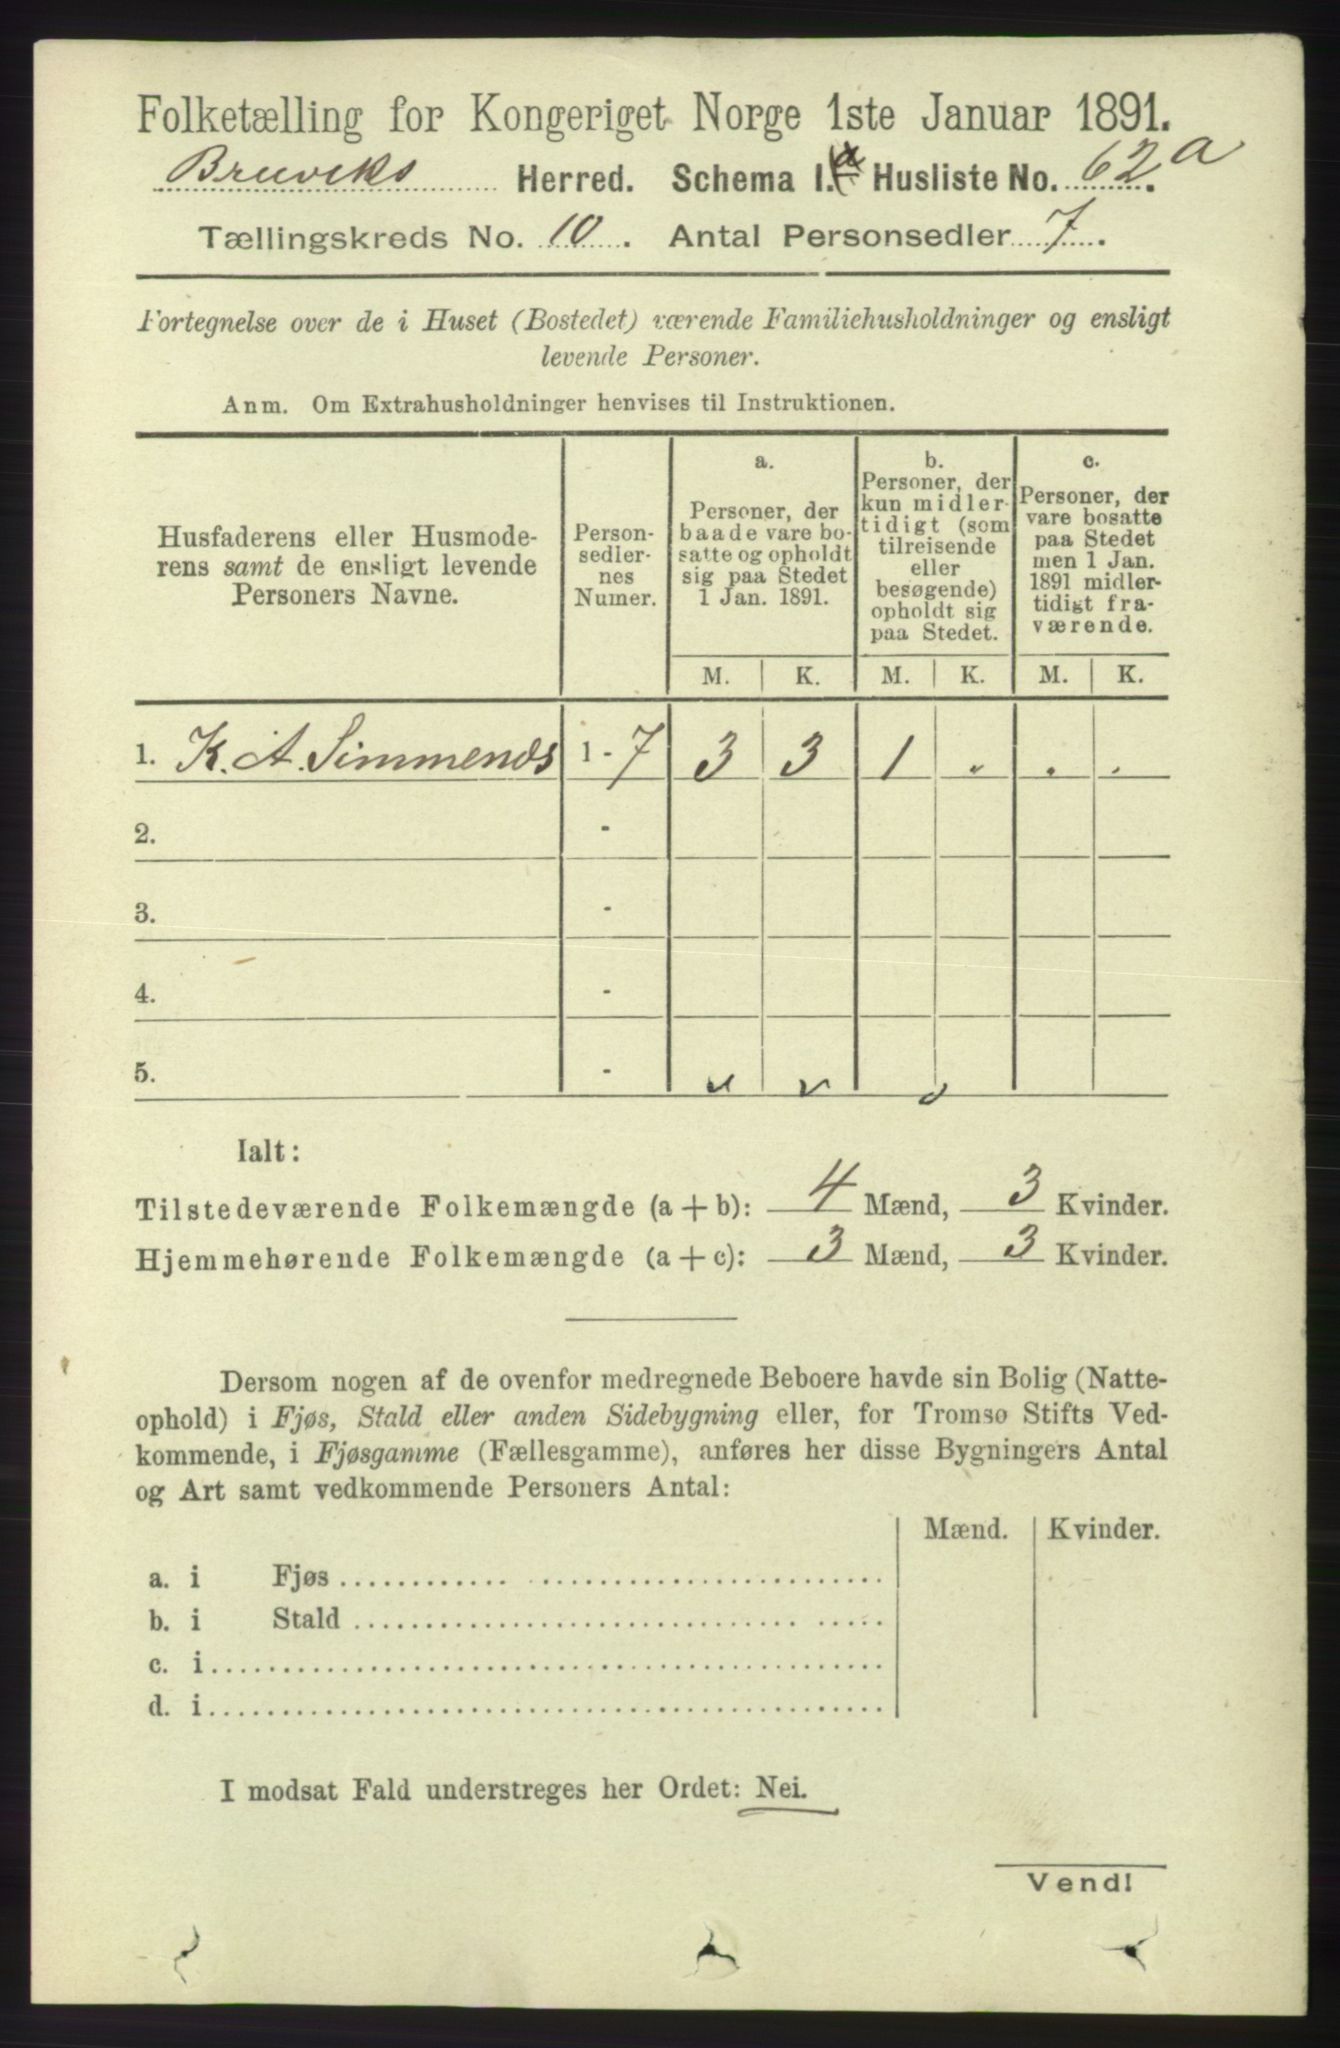 Folketælling for Kongeriget Norge 1ste Januar 1891.
Bruviks Herred. Schema I. a Husliste No. 62 a.
Tællingskreds No. 10. Antal Personsedler 7.
Fortegnelse over de i Huset (Bostedet) værende Familiehusholdninger og ensligt
levende Personer.
Anm. Om Extrahusholdninger henvises til Instruktionen.
Husfaderens eller Husmode-
rens samt de ensligt levende
Personers Navne.
Person-
sedler-
nes
Numer.
a.
Personer, der
baade vare bo-
satte og opholdt
sig paa Stedet
1 Jan. 1891.
b.
Personer, der
kun midler-
tidigt (som
tilreisende
eller
besøgende)
opholdt sig
paa Stedet.
c.
Personer, der
vare bosatte
paa Stedet
men 1 Jan.
1891 midler-
tidigt fra-
værende.
M. K. M. K. M. K.
1. K. A. Simmenes 1 - 7 3 3 1 . . .
2. -
3. -
4. -
5. -
Ialt:
Tilstedeværende Folkemængde (a + b): 4 Mænd, 3 Kvinder.
Hjemmehørende Folkemængde (a + c): 3 Mænd, 3 Kvinder.
Dersom nogen af de ovenfor medregnede Beboere havde sin Bolig (Natte-
ophold) i Fjøs, Stald eller anden Sidebygning eller, for Tromsø Stifts Ved-
kommende, i Fjøsgamme (Fællesgamme), anføres her disse Bygningers Antal
og Art samt vedkommende Personers Antal:
Mænd. Kvinder.
a. i Fjøs
b. i Stald
c. i
d. i
I modsat Fald understreges her Ordet: Nei.
Vend!